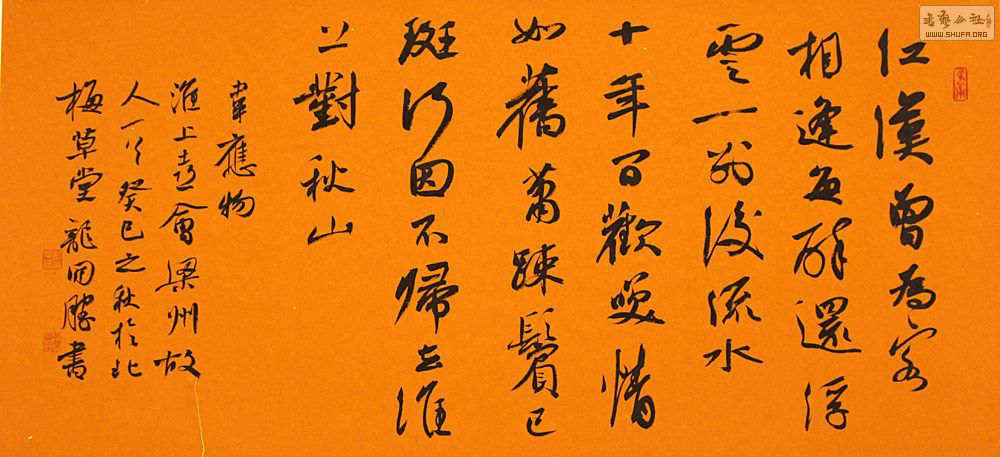 江漢曾為客
相逢每醉還浮
雲一別後流水
十年間歡笑情
如舊蕭疎鬢已
斑何因不歸去淮
上對秋山
韋應物
淮上喜會梁州故
人一首癸巳之秋於北
梅草堂龍開勝書
書藝公社
WWW.SHUFA.ORG